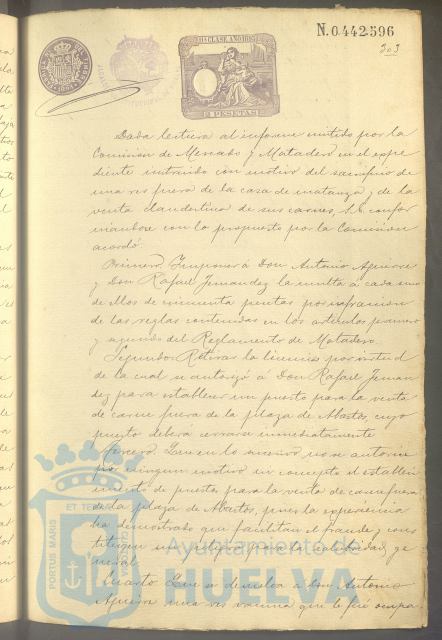 N.0.442.596
303
11ª CLASE. AÑO 1895
2 PESETAS
Dada lectura al informe emitido por la
Comision de Mercado y Matadero en el expe
diente instruido con motivo del sacrificio de
una res fuera de la casa de matanza y de la
venta clandestina de sus carnes, S.E. confor
mandose con lo propuesto por la Comision
acordó:
Primero. Imponer á Don Antonio Aguirre
y Don Rafael Fernandez la multa á cada uno
de ellos de cincuenta pesetas por infraccion
de las reglas contenidas en los articulos primero
y segundo del Reglamento de Matadero.
Segundo. Retirar la licencia por virtud
de la cual se autorizó á Don Rafael Fernan
dez para establecer un puesto para la venta
de carne fuera de la plaza de Abastos, cuyo
puesto deberá cerrarse inmediatamente
Tercero. Que en lo sucesivo no se autorice
por ningun motivo ni concepto el estableci
miento de puestos para la venta de carne fuera
de la plaza de Abastos, pues la experiencia
ha demostrado que facilitan el fraude y cons
tituyen un peligro para la salubridad ge
neral.
Cuarto. Que se devuelva a Don Antonio
Aguirre una res vacuna que le fué ocupa
PORTUS MARIS
ET TERRAE
CUSTODIA
Ayuntamiento de
HUELVA